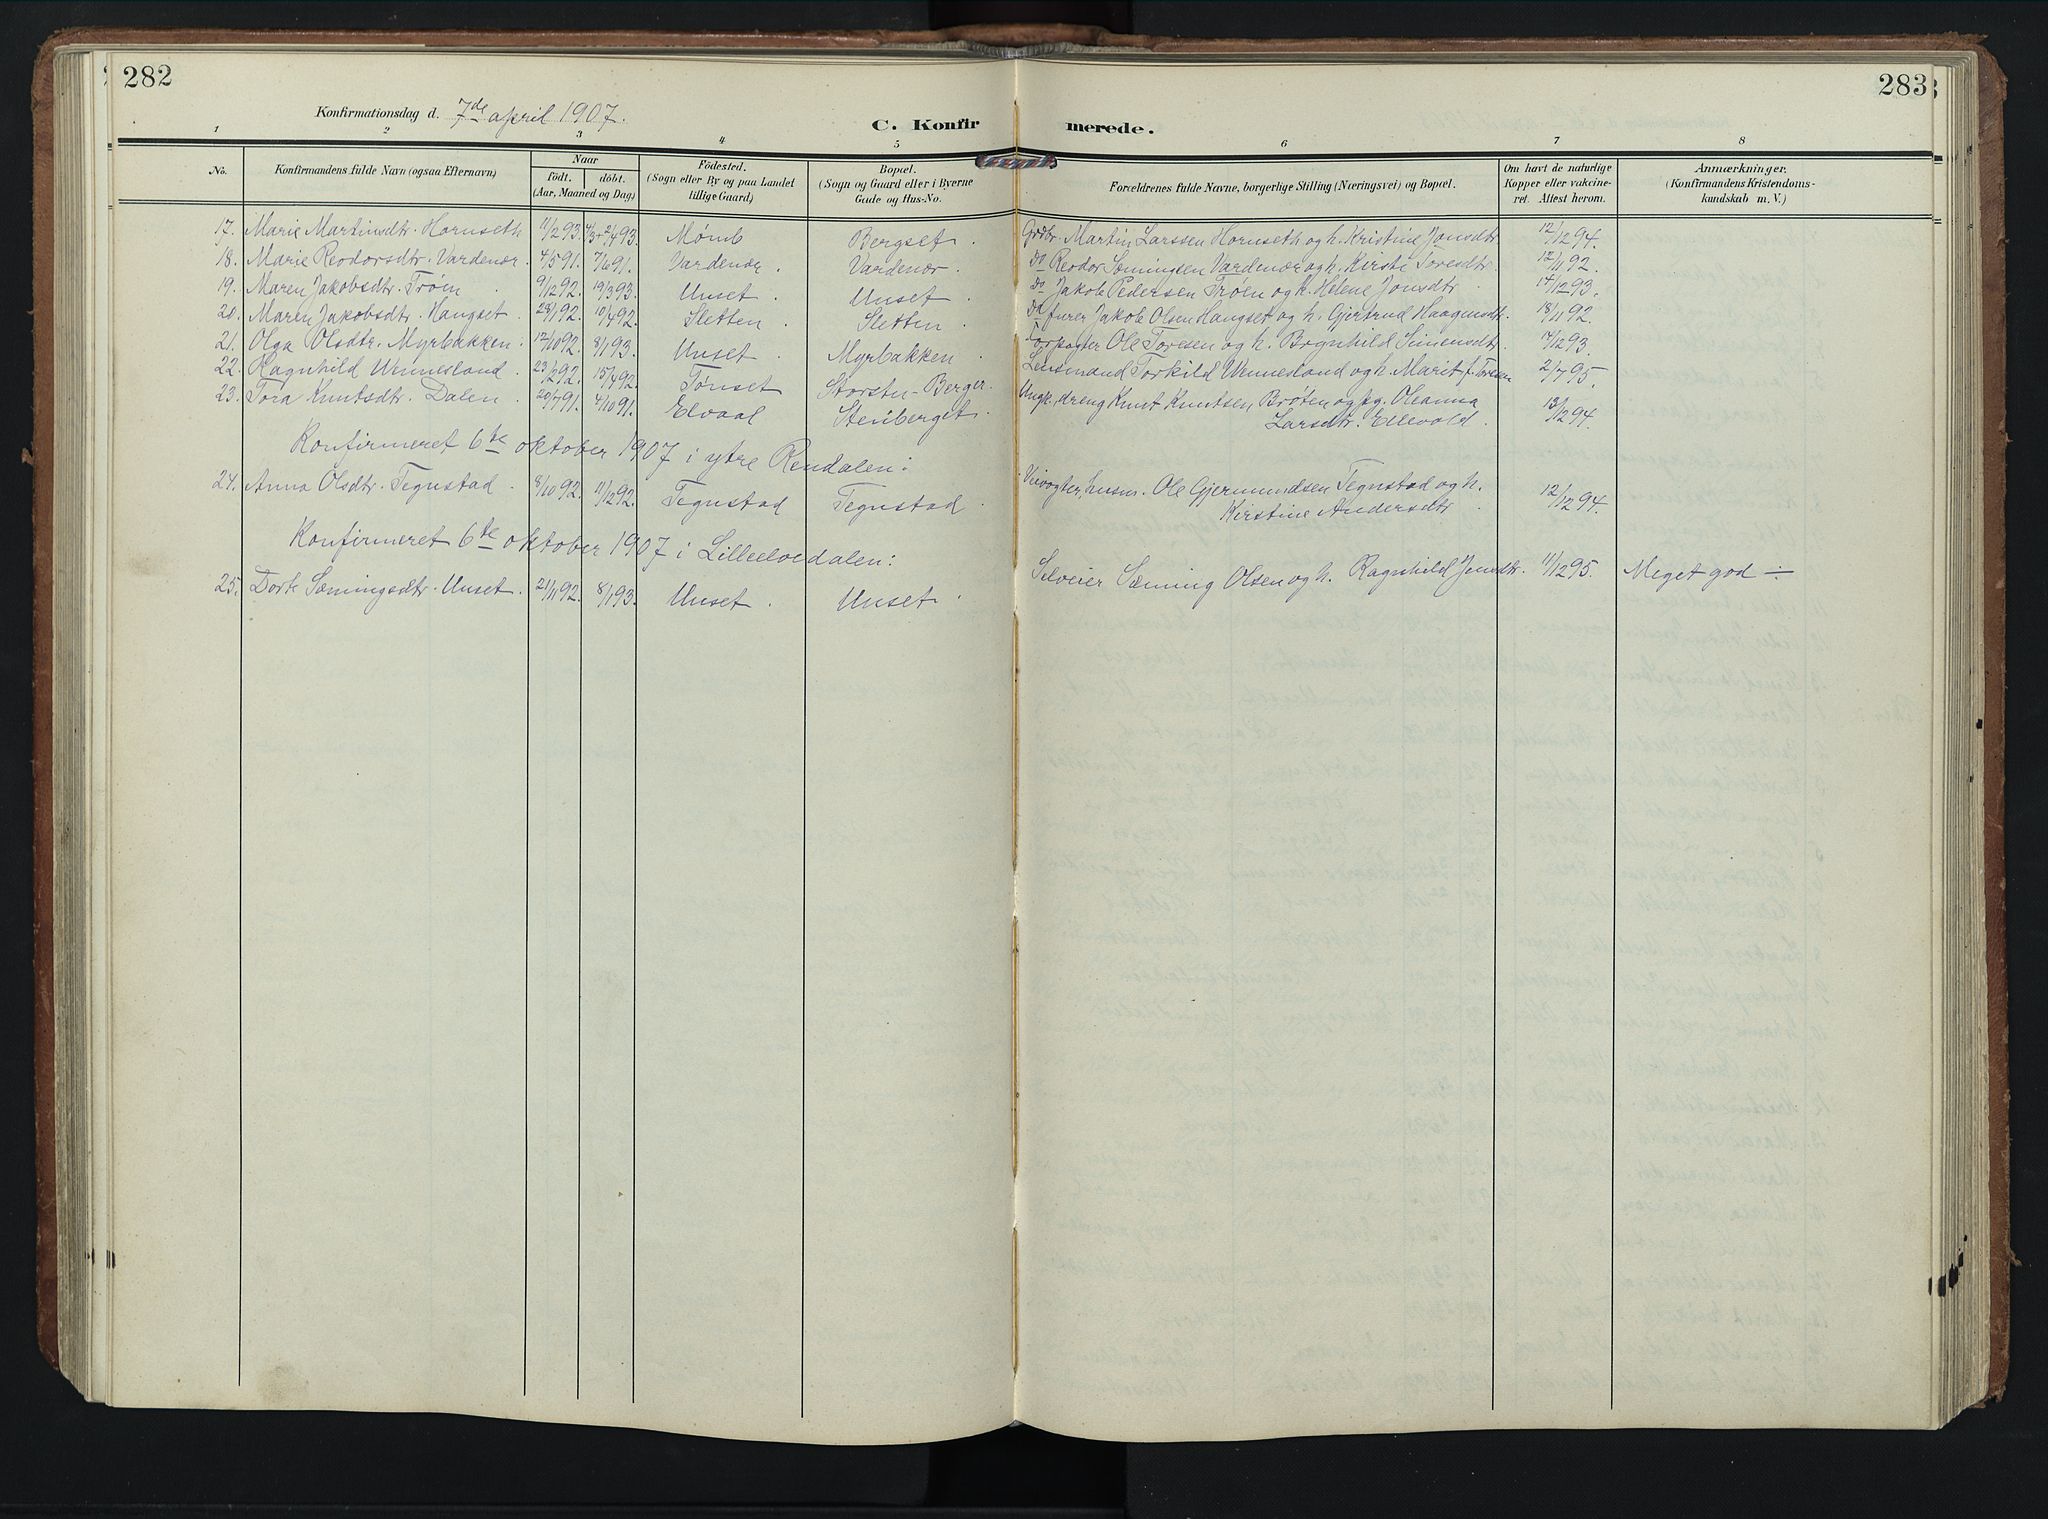 282
283
Konfirmationsdag d. 7de april 1907.
C. Konfir merede.
1 2 3 4 5 6 7 8
No. Konfirmandens fulde Navn (ogsaa Efternavn) Naar født. døbt. (Aar, Maaned og Dag) Fødested. (Sogn eller By og paa Landet tillige Gaard) Bopæl. (Sogn og Gaard eller i Byerne Gade og Hus-No. Forældrenes fulde Navne, borgerlige Stilling (Næringsvei) og Bopæl. Om havt de naturlige Kopper eller vakcineret. Attest herom. Anmærkninger. (Konfirmandens Kristendomskundskab m. V.)
17. Marie Martinsdtr. Hornseth 11/2 93. 2/4 93. Bergset. Grdbr. Martin Larssen Hornseth og h. Kristine Jonsdtr. 12/12 94.
18. Marie Reodorsdtr. Vardenær. 4/5 91. 7/6 91. Vardenær. Vardenær. Do Reodor Sæmingsen Vardenær og h. Kirsti Toresdtr. 12/11 92.
19. Maren Jakobsdtr. Trøen. 9/12 92. 19/3 93. Unset. Unset. Do Jakob Pedersen Trøen og h. Helene Jonsdtr. 14/12 93.
20. Maren Jakobsdtr. Hangset. 28/1 92. 10/4 92. Sletten. Sletten. Do furer Jakob Olsen Hangset og h. Gjertrud Haagensdtr. 18/11 92.
21. Olga Olsdtr. Myrbakken. 12/10 92. 8/1 93. Unset. Myrbakken. Ole Toresen og h. Brynhild Simensdtr. 14/12 93.
22. Ragnhild Wennesland. 23/2 92. 15/4 92. Tønset Storstu-Berger. Lensmand Torkild Wennesland og h. Marit f. Toresen 2/7 95.
23. Tora Knutsdtr. Dalen. 20/7 91. 4/10 91. Elvaal Stenberget. Ungk., dreng Knut Knutsen Brøten og pg. Oleanna Larsdtr. Ellevold. 13/12 94.
Konfirmeret 6te oktober 1907 i ytre Rendalen:
24. Anna Olsdtr. Tegnstad. 8/10 92. 11/12 92. Tegnstad Tegnstad. Veivogter, husm. Ole Gjermundsen Tegnstad og h. Kirstine Andersdtr. 12/12 94.
Konfirmeret 6te oktober 1907 i Lilleelvedalen:
25. Dorte Sæmingsdtr. Unset. 21/11 92. 8/1 93. Unset. Unset. Selveier Sæming Olsen og h. Ragnhild Jonsdtr. 11/12 95. Meget god ÷